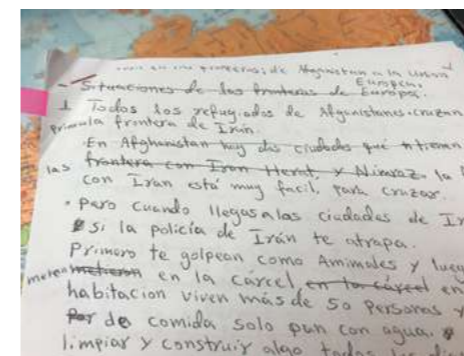 en las fronteras de Afganistan a la Union
Europea.
- Situaciones de las fronteras de Europa.
1 Todos los refugiados de Afganistanes cruzan
Primula frontera de Irán.
· En Afghanistan hay dos ciudades que tienen
las frontera con Iran Herat, y Nimroz. la
con Iran está muy facil, para cruzar.
· Pero cuando llegas a las ciudades de I
si la policía de Irán te atrapa.
Primero te golpean como Amimales y lueg
meten metieron en la cárcel en la cárcel en
habitacion viven más de 50 personas y
Por de comida solo pan con agua.
limpiar y construir algo todos